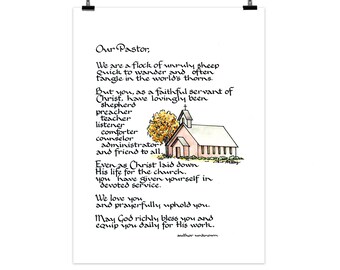 Our Pastor,
We are a flock of unruly sheep
quick to wander and often
tangle in the world's thorns.
But you, as a faithful servant of
Christ, have lovingly been
shepherd
preacher
teacher
listener
comforter
counselor
administrator
and friend to all.
Even as Christ laid down
His life for the church,
you have given yourself in
devoted service.
We love you
and prayerfully uphold you.
May God richly bless you and
equip you daily for His work.
author unknown